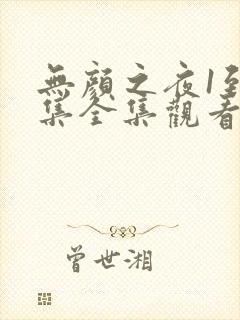 無顏之夜1至
集全集觀看
曾世湘